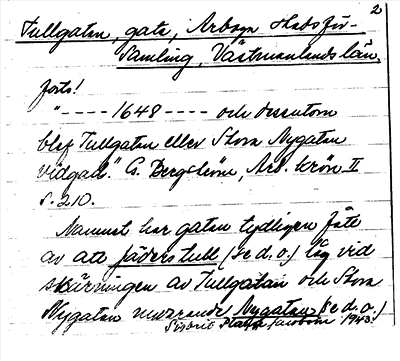 2
Tullgatan, gata, Arboga stadsför-
samling, Västmanlands län,
forts!
"---- 1648 ---- och dessutom
blef Tullgatan eller Stora Nygatan
vidgad." G. Bergström, Arb. krön II
s. 210.
Namnet har gatan tydligen fått
av att fäderstull (se d.o.) låg vid
skärningen av Tullgatan och Stora
Nygatan nuvarande Nygatan (se d.o.)
1943.